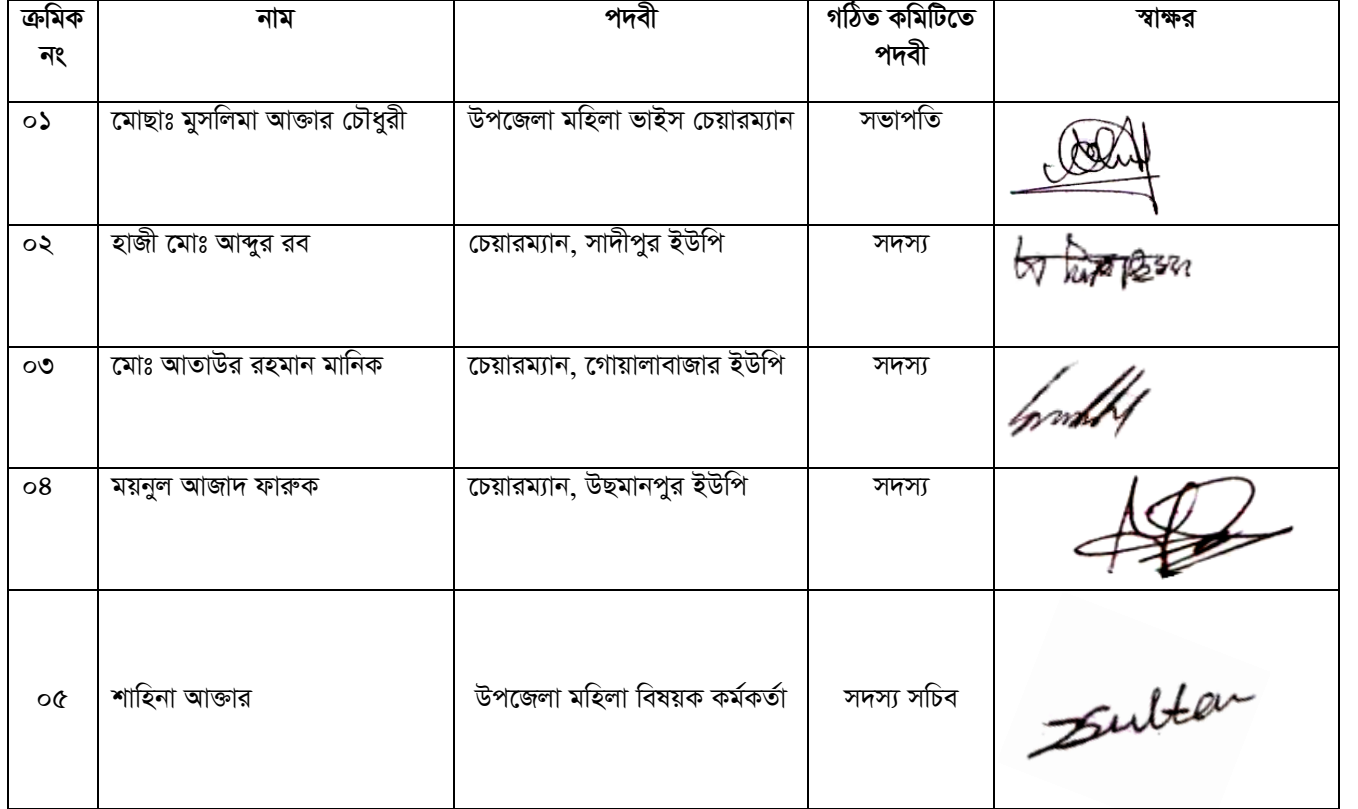 ক্রমিক নং নাম পদবী গঠিত কমিটিতে পদবী স্বাক্ষর
০১ মোছাঃ মুসলিমা আক্তার চৌধুরী উপজেলা মহিলা ভাইস চেয়ারম্যান সভাপতি
০২ হাজী মোঃ আব্দুর রব চেয়ারম্যান, সাদীপুর ইউপি সদস্য
০৩ মোঃ আতাউর রহমান মানিক চেয়ারম্যান, গোয়ালাবাজার ইউপি সদস্য
০৪ ময়নুল আজাদ ফারুক চেয়ারম্যান, উছমানপুর ইউপি সদস্য
০৫ শাহিনা আক্তার উপজেলা মহিলা বিষয়ক কর্মকর্তা সদস্য সচিব